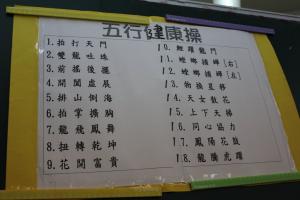 五行健康操
1. 拍打天門
2. 雙龍吐珠
3. 前搖後擺
4. 開闔虛展
5. 排山倒海
6. 拍掌擴胸
7. 龍飛鳳舞
8. 扭轉乾坤
9. 花開富貴
10. 鯉躍龍門
11. 螳螂捕蟬[右]
12. 螳螂捕蟬[左]
13. 物換星移
14. 天女散花
15. 上下天梯
16. 同心協力
17. 鳳陽花鼓
18. 龍騰虎躍